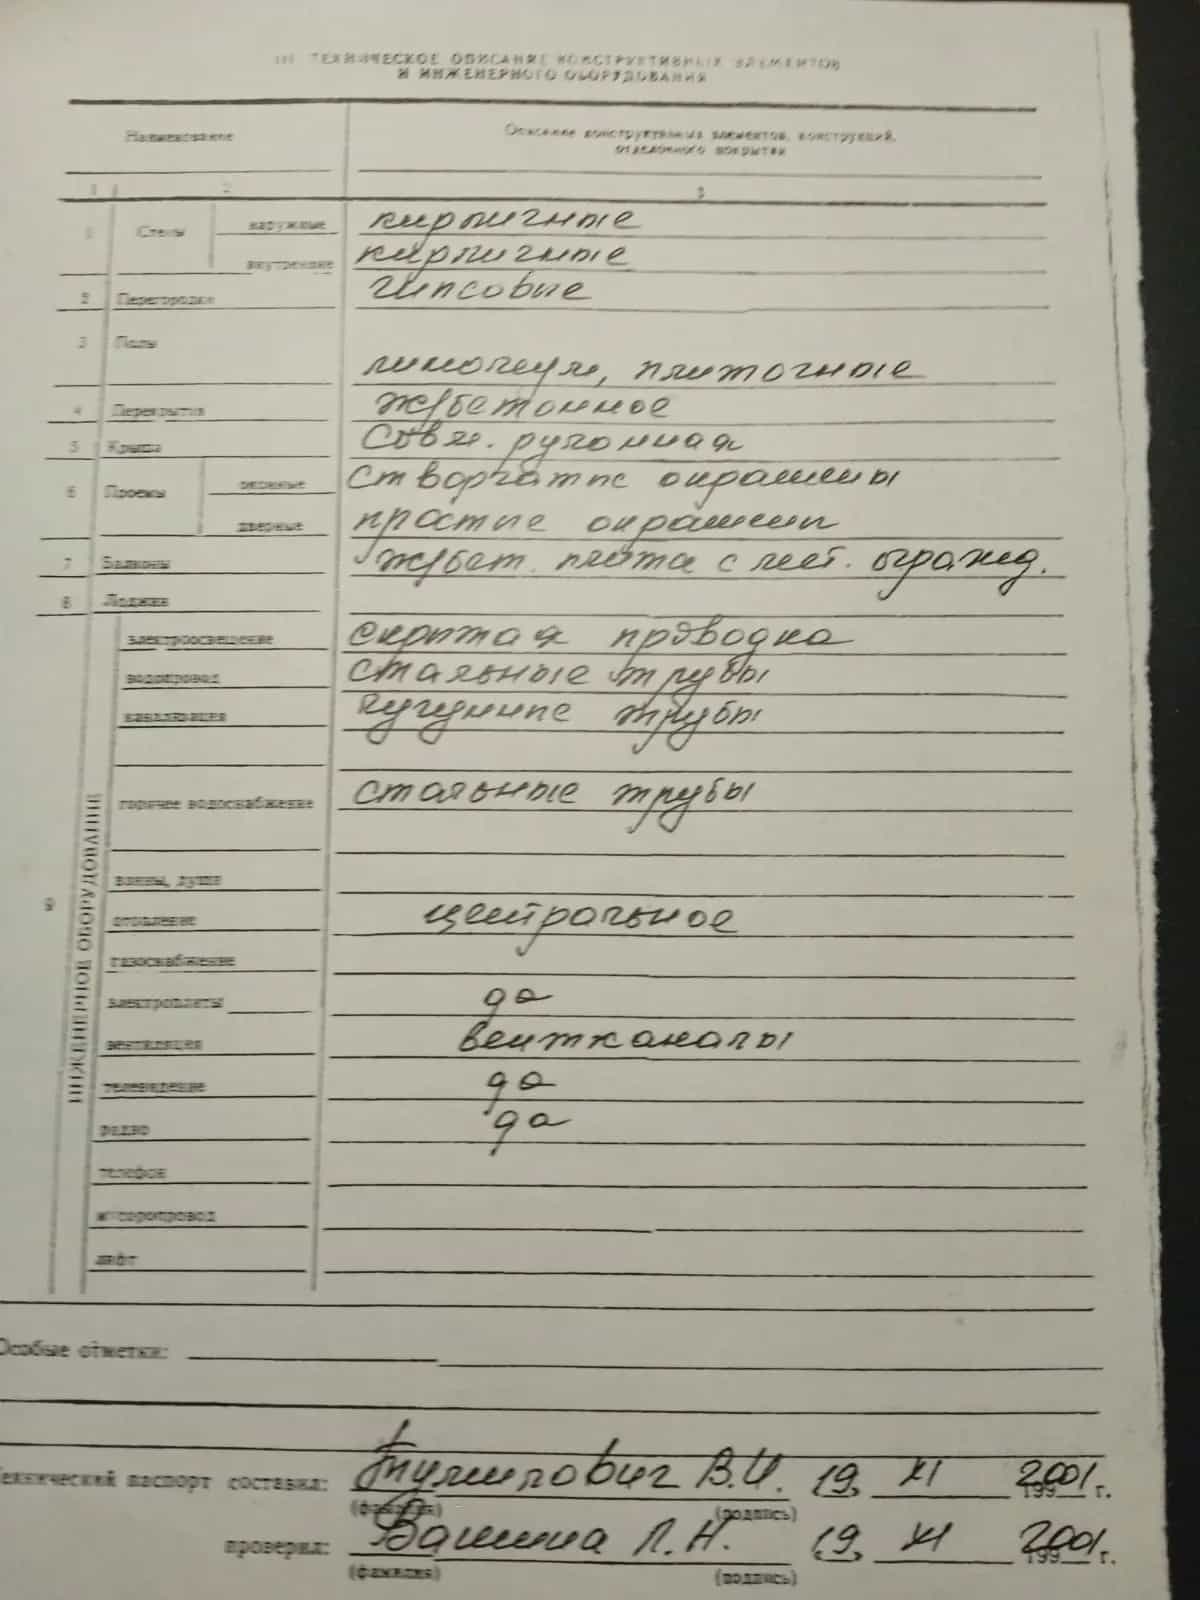 III. ТЕХНИЧЕСКОЕ ОПИСАНИЕ КОНСТРУКТИВНЫХ ЭЛЕМЕНТОВ
И ИНЖЕНЕРНОГО ОБОРУДОВАНИЯ
Наименование Описание конструктивных элементов, конструкций,
отделочного покрытия
1 2 3
1 Стены наружные кирпичные
внутренние кирпичные
2 Перегородки гипсовые
3 Полы
линолеум, плиточные
4 Перекрытия ж/бетонное
5 Крыша Совм. рулонная
6 Проемы оконные створчатые окрашены
дверные простые окрашены
7 Балконы ж/бет. плита с мет. огражд.
8 Лоджии
9 ИНЖЕНЕРНОЕ ОБОРУДОВАНИЕ
электроосвещение скрытая проводка
водопровод стальные трубы
канализация чугунные трубы
горячее водоснабжение стальные трубы
ванны, души
отопление центральное
газоснабжение
электроплиты да
вентиляция вентканалы
телевидение да
радио да
телефон
мусоропровод
лифт
Особые отметки:
Технический паспорт составил: В.И. 19 XI 2001 г.
(фамилия) (подпись) 199
проверил: Вашина Л.Н. 19 XI 2001 г.
(фамилия) (подпись) 199